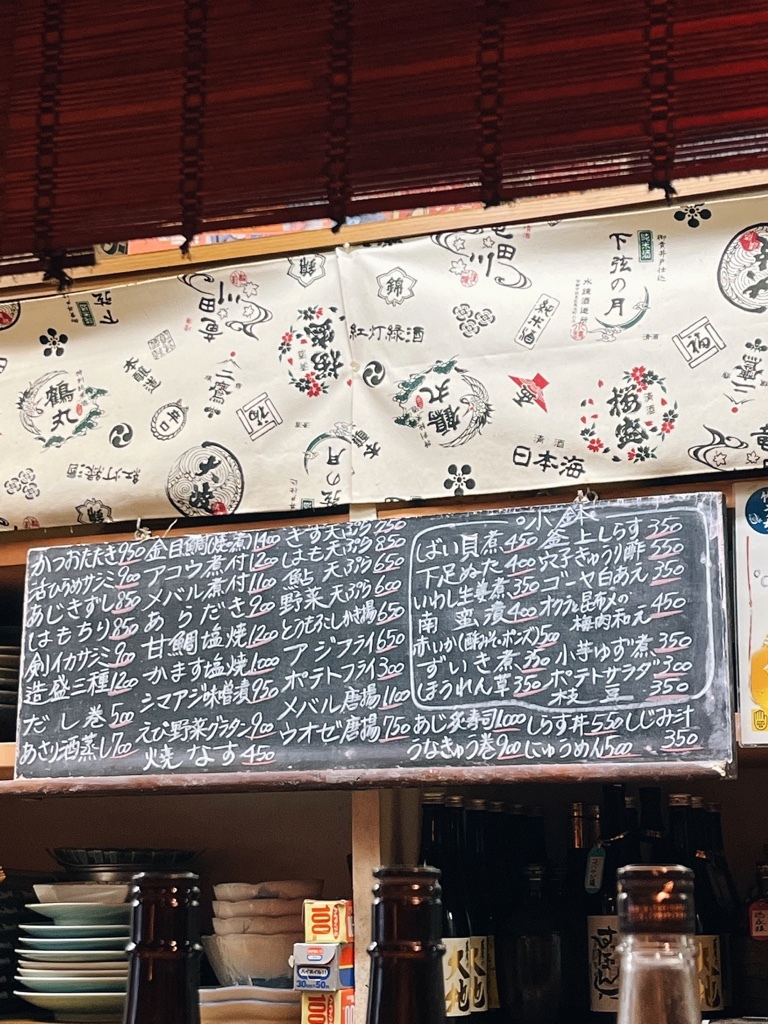 錦
竜田川
下弦の月
純米酒
錦
紅灯緑酒
純米酒
清酒
福
本醸造
梅盛
鶴丸
井口
福
鶴丸
清酒
梅盛
清酒
日本海
紅灯緑酒
かつおたたき950
活ひらめサシミ900
あじきずし850
はもちり850
剣イカサシミ900
造盛三種1200
だし巻500
あさり酒蒸し700
金目鯛(焼煮)1400
アコウ煮付1200
メバル煮付1100
あらだき900
甘鯛塩焼1200
かます塩焼1000
シマアジ味噌漬950
えび野菜グラタン900
焼なす450
きす天ぷら750
はも天ぷら850
鮎天ぷら650
野菜天ぷら600
とうもろこしかき揚650
アジフライ650
ポテトフライ300
メバル唐揚1100
ウオゼ唐揚750
小鉢
ばい貝煮450
下足ぬた400
いわし生姜煮350
南蛮漬400
赤いか(酢みそ・ポンズ)500
ずいき煮350
ほうれん草350
釜上しらす350
穴子きゅうり酢550
ゴーヤ白あえ350
オクラと昆布〆の
梅肉和え450
小芋ゆず煮350
ポテトサラダ300
枝豆350
あじ炙寿司1000
しらす丼550
しじみ汁
350
うなきゅう巻900
にゅうめん500
100
100
30cm×50m
大地
大地